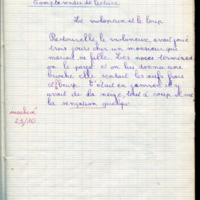 Compte rendu de lecture
Le violoneux et le loup
Restourelle le violoneux, avait joué
trois jours chez un monsieur qui
mariait sa fille. Les noces terminées
on le paya et on lui donna une
brioche elle sentait les œufs frais
et beurre. C'était en janvier et il y
avait de la neige, tout à coup il eut
la sensation
23/10